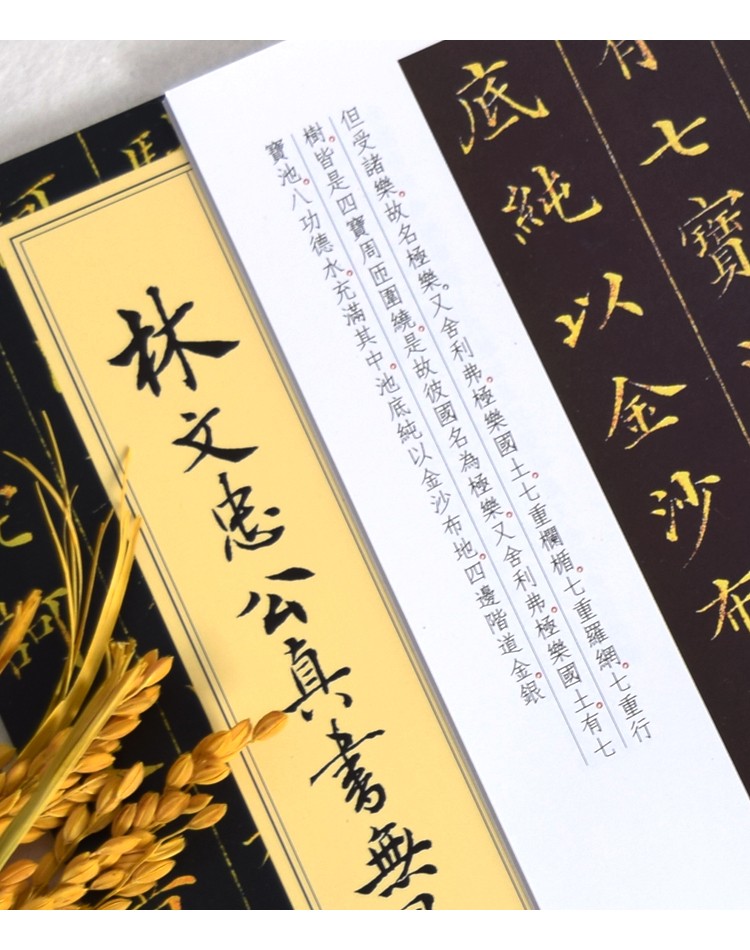 有七寶
底純以金沙布
但受諸樂。故名極樂。又舍利弗。極樂國土。七重欄楯。七重羅網。七重行
樹。皆是四寶周匝圍繞。是故彼國名為極樂。又舍利弗。極樂國土。有七
寶池。八功德水。充滿其中。池底純以金沙布地。四邊階道金。銀
林文忠公真書無